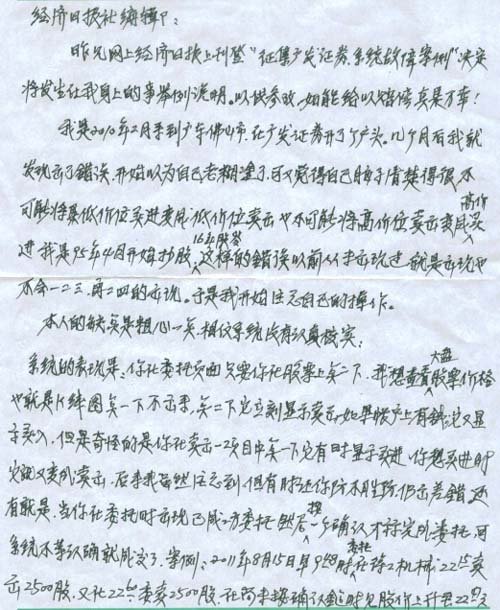 经济日报社编辑们:
昨见网上经济日报上刊登"征集广发证券系统故障案例"决定
将发生在我身上的事举例说明。以供参改,如能给以赔偿真是万幸!
我是2010年2月来到广东佛山市,在广发证券开了个户头。几个月后我就
发现出了错误,开始以为自己老糊涂了,可又觉得自己脑子清楚得很,不
可能将最低价位买进变成低价位卖出也不可能将高价位卖出变成高价买
进,我是95年4月开始抄股,16年股龄这样的错误以前从未出现过,就是出现也
不会一二三,再二四的出现。于是我开始注意自己的操作。
本人的缺点是粗心一点,相信系统没有认真核实;
系统的表现是:你在委托页面只要你在股票上点一下,我想查看大盘股票价格
也就是K线图点一下不出来,点二下它立刻显示卖出,如果帐户上有钱它又显
示买入,但是奇怪的是你在卖出一项目中点一下它有时显示买进,你想买进时
它就又变成卖出,后来我虽然注意到,但有时还你防不胜防仍出差错,还
有就是,当你在委托时出现已成一方委托,然后一按确认才称完成委托,可
系统不等认确就成交了。案例:2011年8月15日早9:28时委托在徐工机械:22.15卖
出2500股,又在22.委卖2500股,在尚未按确认前见股价上升至22.3